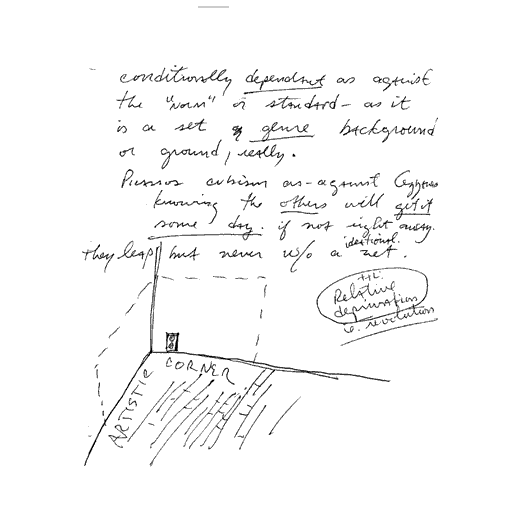 conditionally dependant as against
the "norm" or standard - as it
is a set of genre background
or ground, really.
Picassos cubism as-against
knowing the others will get it
some day. if not right away.
ideational.
They leap but never w/o a net.
Relative
deprivation
i.e. revolution
ARTISTIC CORNER